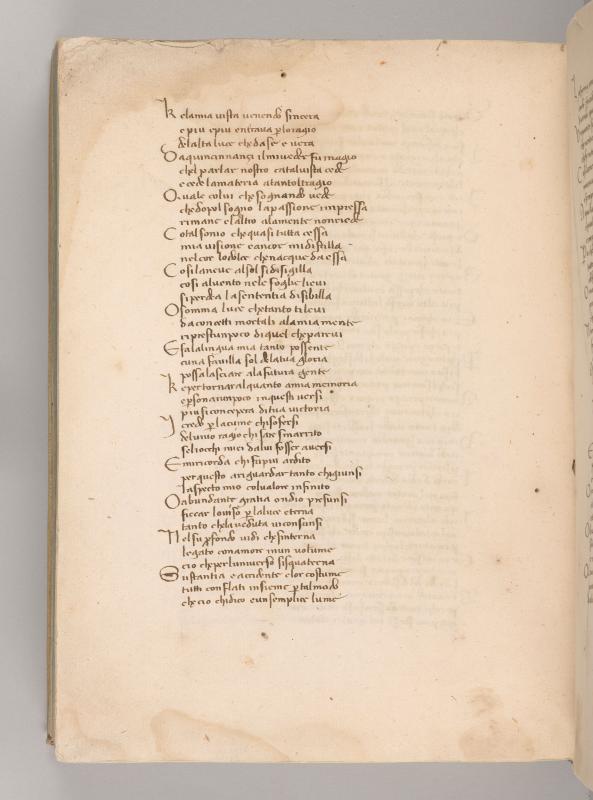 K elamia vista venendo sincera
e piu epiu entraua ploragio
delalta luce cheda se e vera
D aquincinnançi ilmiueder fu magio
chel parlar nostro catalvista cede
e cede lamateria atantoltragio
Q uale colui che sognando vede
chedopol sogno lapassione impressa
rimane elaltro alamente nonriede
C otal sonio chequasi tutta cessa
mia visione eancor midistilla
nelcor lodolce chenacque da essa
C osi laneue alsol sidisigilla
cosi alvento nele foglie lievi
siperdea lasententia disibilla
O somma luce chetanto tilevi
daconcetti mortali alamia mente
ripresta unpoco diquel cheparevi
E fa lalingua mia tanto possente
cuna favilla sol delatua gloria
possalasciare alafutura gente
K e per tornar alquanto amia memoria
epsonare unpoco inquesti versi
piu siconcepera ditua victoria
I credo placume chisofersi
deluivo ragio chi sare smarrito
seliochi miei dalui fosser aversi
E miricorda chi fupiu ardito
perquesto ariguardar tanto chigiunsi
laspecto mio colvalore infinito
O abundante gratia ondio presunsi
ficcar loviso plaluce eterna
tanto chelaveduta viconsunsi
N elsu pfondo vidi chesinterna
legato conamore inun volume
cio cheperluniverso sisquaterna
S ustantia eaccidente elor costume
tutti conflati insieme ptalmodo
checio chidico eunsemplice lume